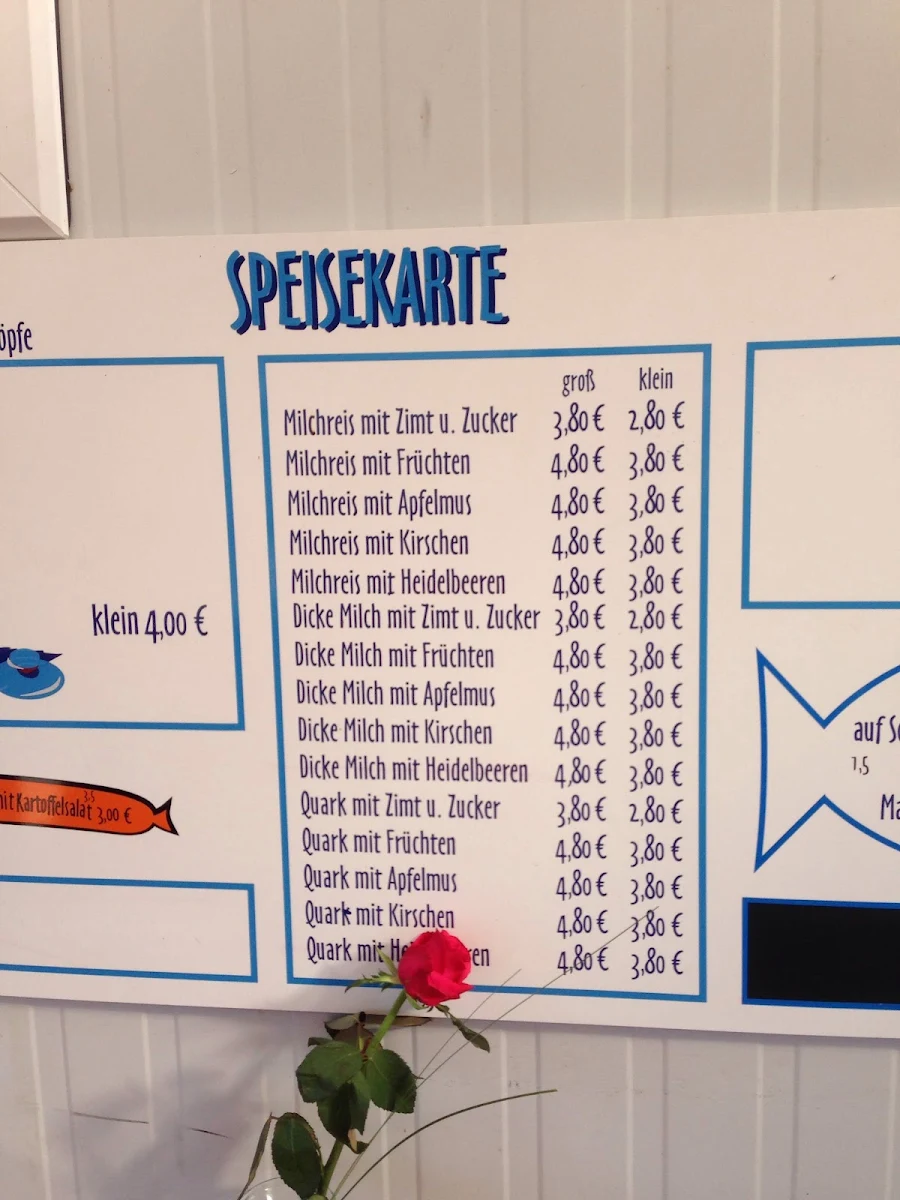 SPEISEKARTE
öpfe
klein 4,00 €
mit Kartoffelsalat 3,5 3,00 €
groß klein
Milchreis mit Zimt u. Zucker 3,80 € 2,80 €
Milchreis mit Früchten 4,80 € 3,80 €
Milchreis mit Apfelmus 4,80 € 3,80 €
Milchreis mit Kirschen 4,80 € 3,80 €
Milchreis mit Heidelbeeren 4,80 € 3,80 €
Dicke Milch mit Zimt u. Zucker 3,80 € 2,80 €
Dicke Milch mit Früchten 4,80 € 3,80 €
Dicke Milch mit Apfelmus 4,80 € 3,80 €
Dicke Milch mit Kirschen 4,80 € 3,80 €
Dicke Milch mit Heidelbeeren 4,80 € 3,80 €
Quark mit Zimt u. Zucker 3,80 € 2,80 €
Quark mit Früchten 4,80 € 3,80 €
Quark mit Apfelmus 4,80 € 3,80 €
Quark mit Kirschen 4,80 € 3,80 €
Quark mit 4,80 € 3,80 €
auf
1,5